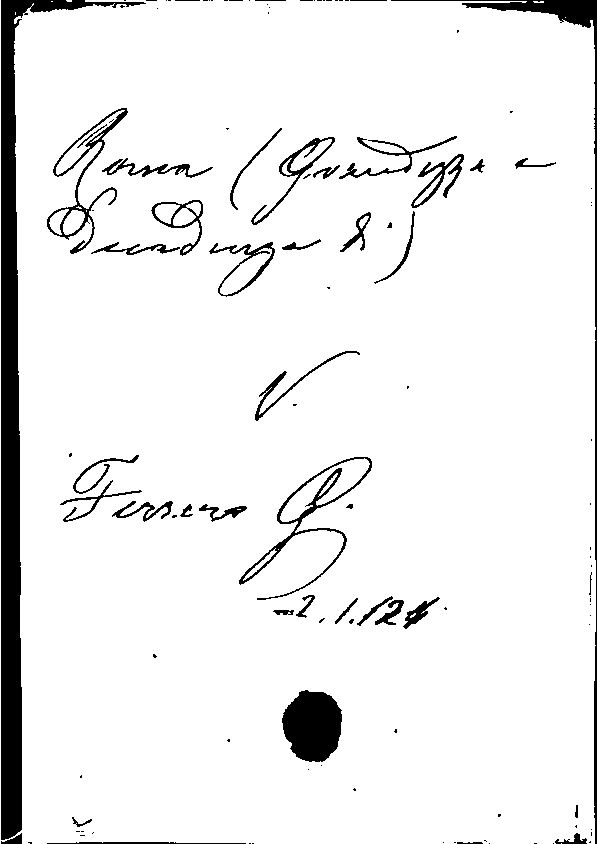 Roma (Grandezza e
Decadenza di)
V.
Ferrero G.
2.1.124